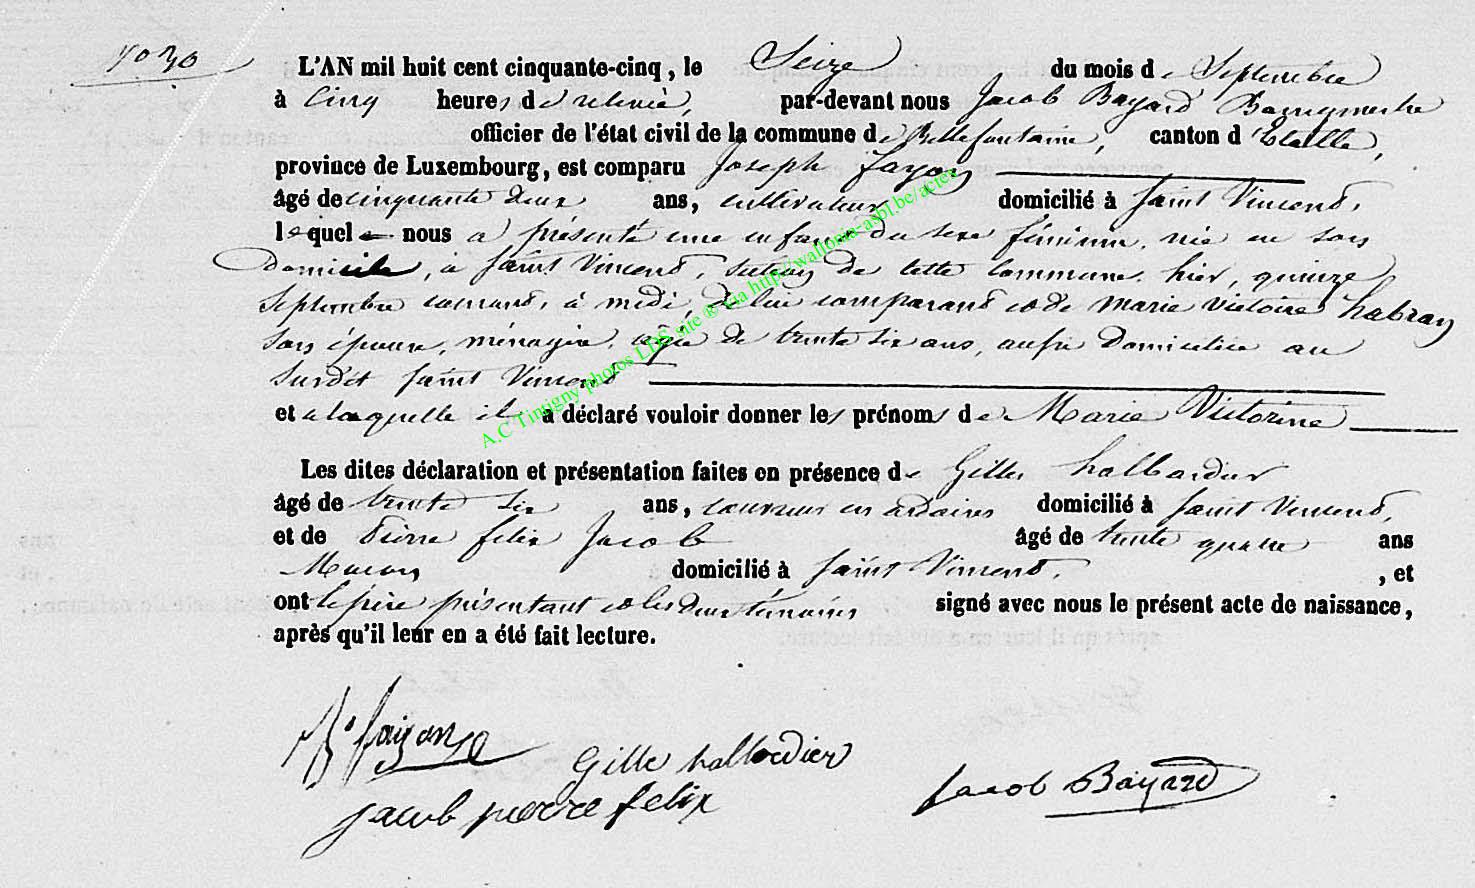 N° 30
L'AN mil huit cent cinquante-cinq, le Seize du mois de Septembre
à Cinq heures de relevée, par-devant nous Jacob Bayard Bourgmestre
officier de l'état civil de la commune de Bellefontaine, canton d'Etalle,
province de Luxembourg, est comparu Joseph fayon
âgé de cinquante deux ans, cultivateur domicilié à Saint Vincent,
lequel nous a présenté une enfant du sexe féminin, née en son
domicile, à Saint Vincent, section de cette commune, hier, quinze
septembre courant, à midi, de lui comparant et de Marie Victoire habran
son épouse, ménagère, âgée de trente six ans, aussi domiciliée au
susdit Saint Vincent
et a laquelle il a déclaré vouloir donner les prénoms de Marie Victorine
Les dites déclaration et présentation faites en présence de Gilles halbardier
âgé de trente six ans, couvreur en ardoises domicilié à Saint Vincent,
et de Pierre felix Jacob âgé de trente quatre ans
Macon domicilié à Saint Vincent, , et
ont le père présentant et les deux témoins signé avec nous le présent acte de naissance,
après qu'il leur en a été fait lecture.
A.C Tintigny photos LDS site ® via http://wallonia-asbl.be/actes
fayon
Gille halbardier
Jacob Bayard
jacob pierre felix